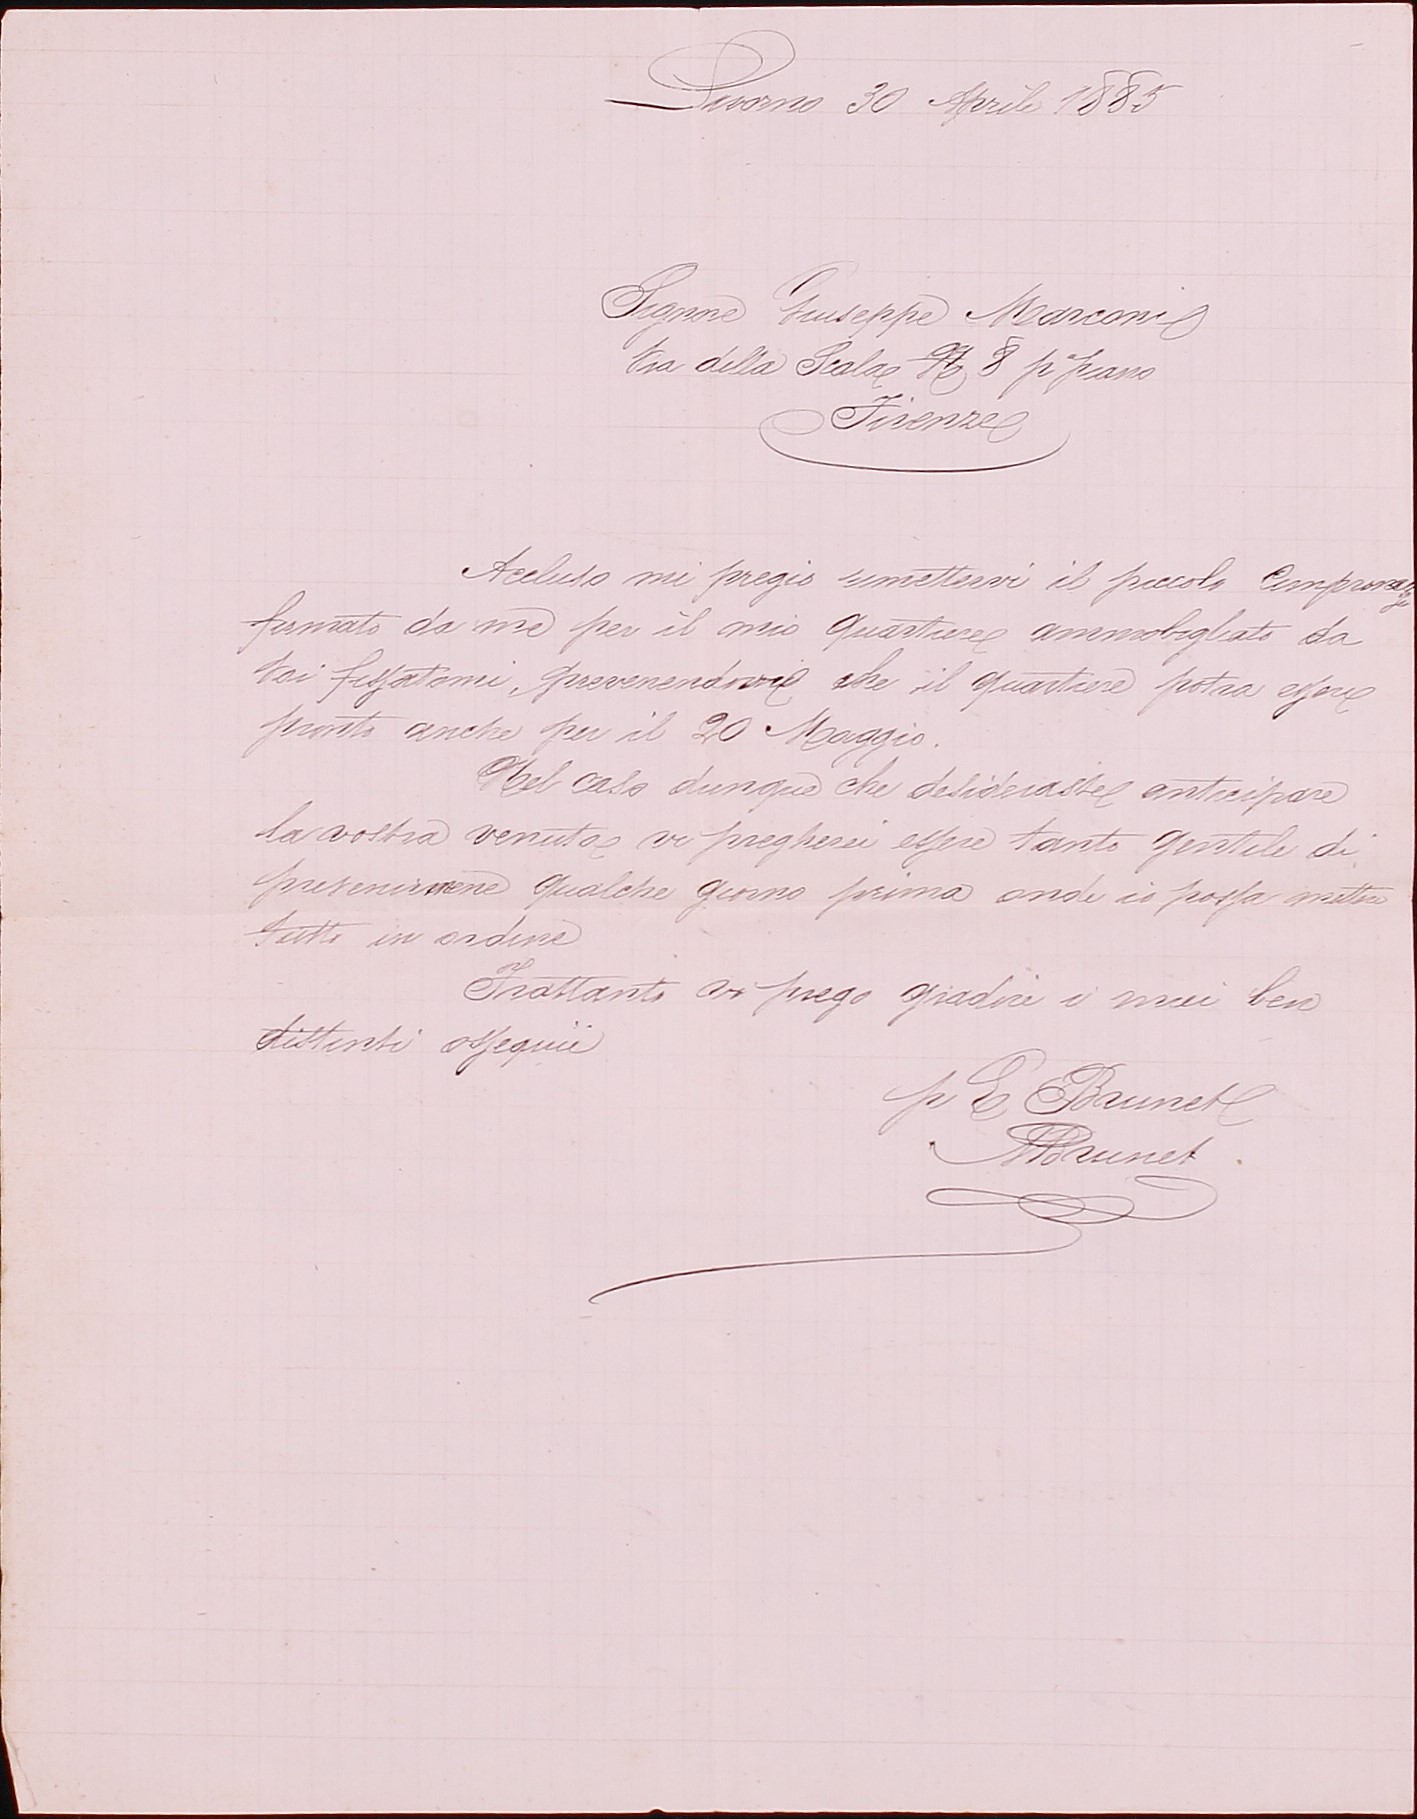 Livorno 30 Aprile 1885
Signore Giuseppe Marconi
Via della Scala N 8 p° piano
Firenze
Accluso mi pregio rimettervi il piccolo
firmato da me per il mio quartiere ammobigliato da
Voi fissatomi, prevenendovi che il quartiere potra essere
pronto anche per il 20 Maggio.
Nel caso dunque che desideraste anticipare
la vostra venuta vi pregherei essere tanto gentile di
prevenirmene qualche giorno prima onde io possa mettere
tutto in ordine
Frattanto vi prego gradire i miei ben
distinti ossequii
p E Brunet
Brunet